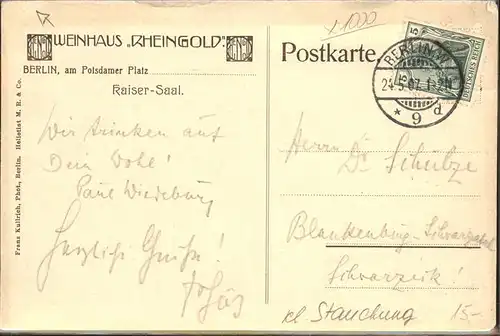 x 1000
WEINHAUS „RHEINGOLD"
BERLIN, am Potsdamer Platz
Kaiser-Saal.
Franz Kullrich, Phot., Berlin. Heliotint M. R. & Co.
Wir trinken auf
Dein Wohl!
Paul
Herzliche Grüße!
Postkarte
5
DEUTSCHES REICH
BERLIN W
24.5.07. 1-2N
* 9 d
Herrn Dr. Schulze
Blankenburg-Schwarzatal
Schwarzeck!
kl Stauchung
15-